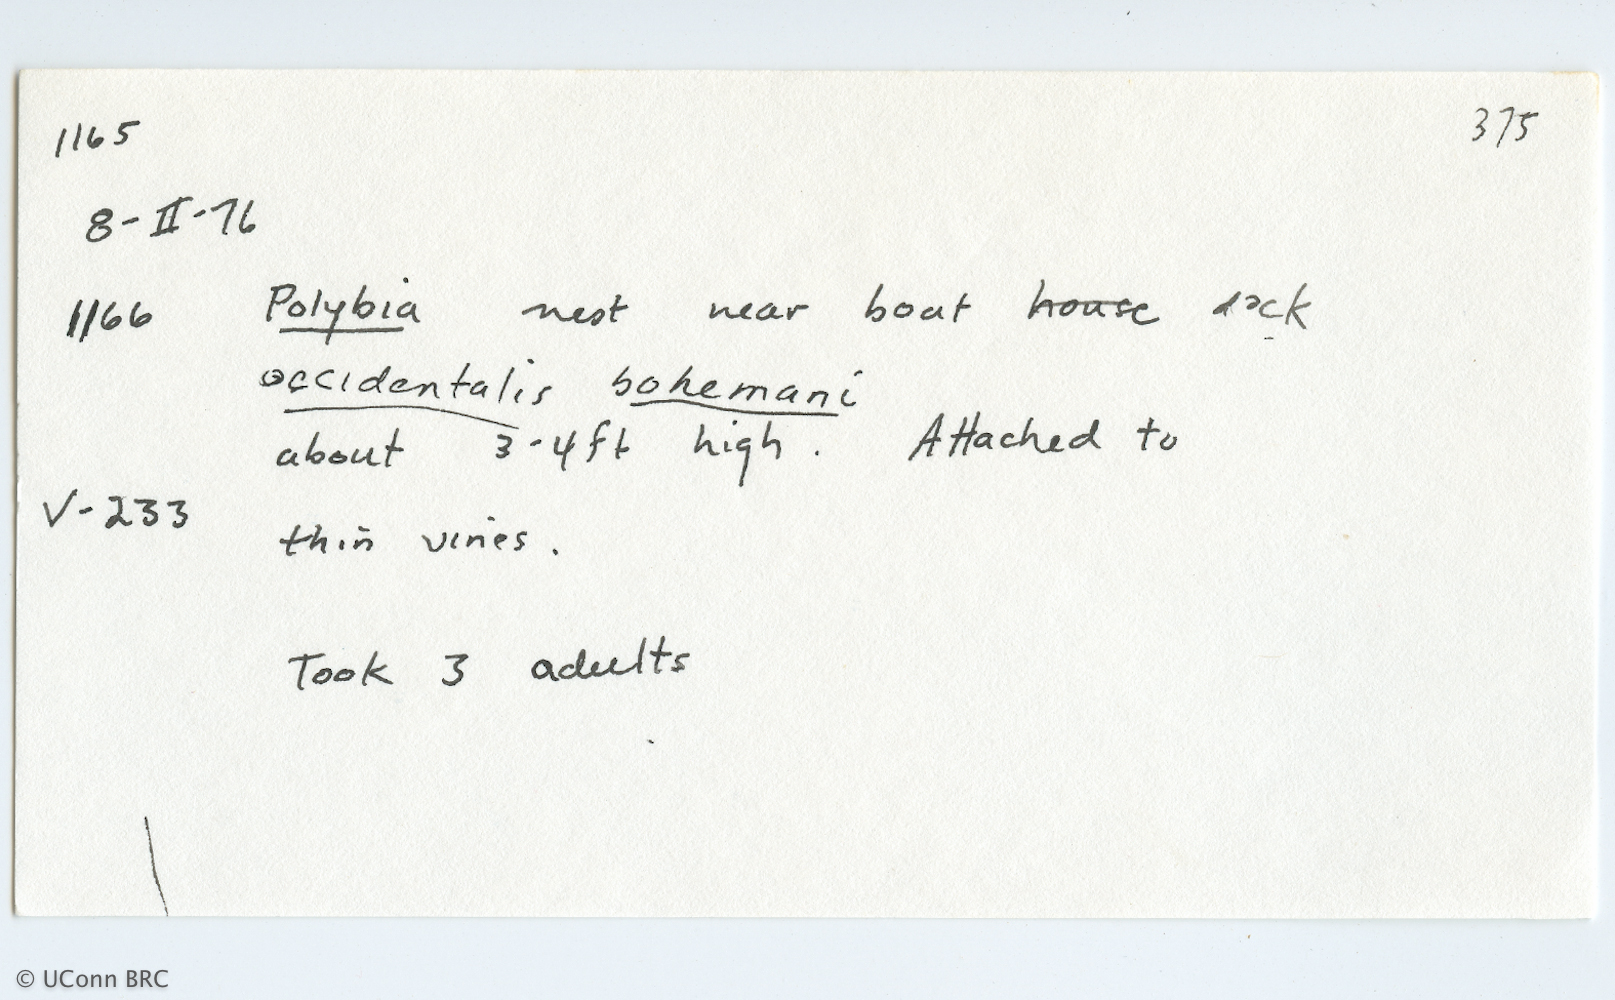 1165
375
8-II-76
1166 Polybia nest near boat house dock
occidentalis bohemani
about 3-4ft high. Attached to
V-233
thin vines.
Took 3 adults
© UConn BRC